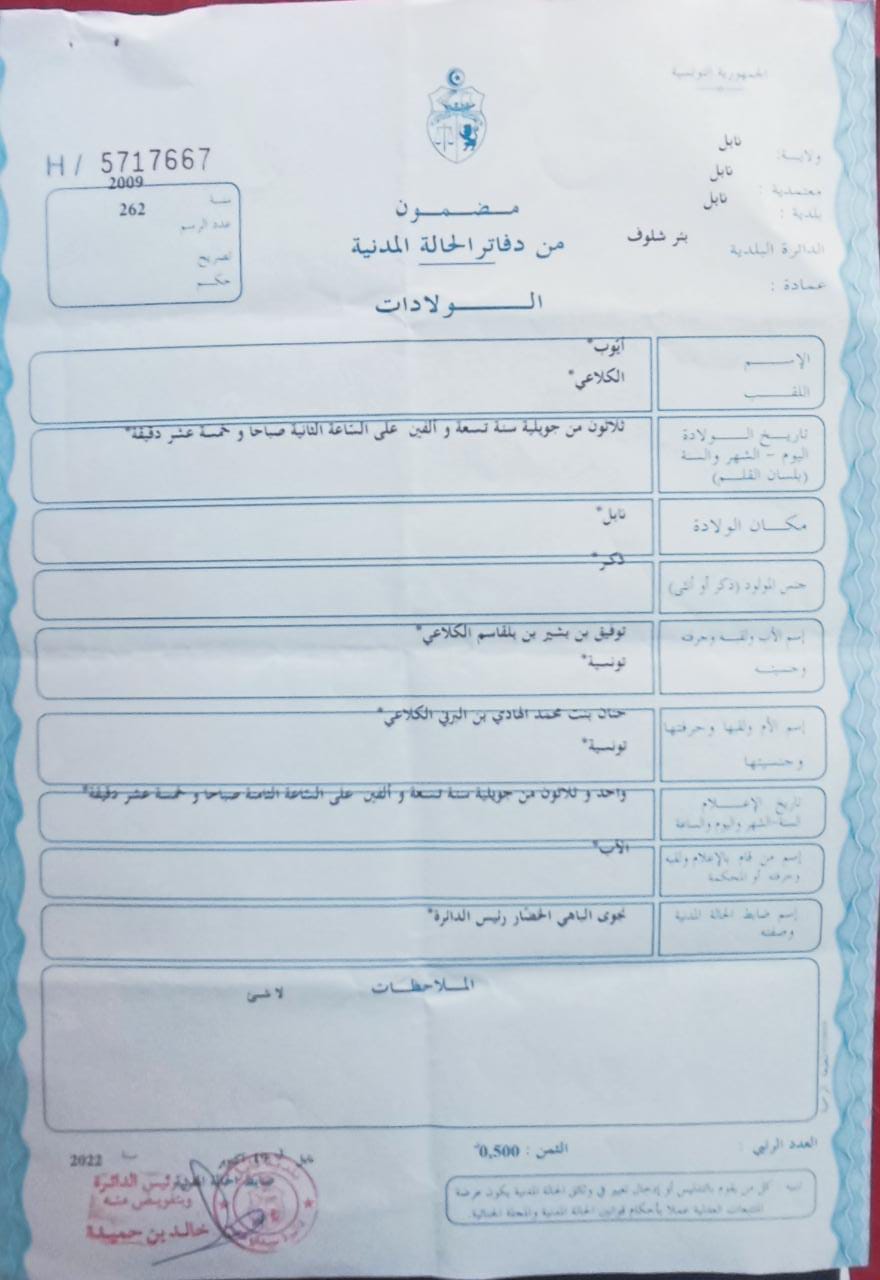 الجمهورية التونسية
ولاية: نابل
معتمدية : نابل
بلدية : نابل
الدائرة البلدية بئر شلوف
عمادة :
H / 5717667
سنة 2009
عدد الرسم 262
تصريح
حكم
مضمون
من دفاتر الحالة المدنية
الولادات
الإسم أيوب*
اللقب الكلاعي*
تاريخ الولادة
اليوم - الشهر والسنة
(بلسان القلم)
ثلاثون من جويلية سنة تسعة و ألفين على الساعة الثانية صباحا و خمسة عشر دقيقة*
مكان الولادة نابل*
جنس المولود (ذكر أو أنثى) ذكر*
إسم الأب ولقبه وحرفته توفيق بن بشير بن بلقاسم الكلاعي*
وجنسيته تونسية*
إسم الأم ولقبها وحرفتها حنان بنت محمد الهادي بن البرني الكلاعي*
وجنسيتها تونسية*
تاريخ الإعلام
السنة-الشهر واليوم والساعة
واحد و ثلاثون من جويلية سنة تسعة و ألفين على الساعة الثامنة صباحا و خمسة عشر دقيقة*
إسم من قام بالإعلام ولقبه
وحرفته أو المحكمة
الأب*
إسم ضابط الحالة المدنية
وصفته
نجوى الباهي الخضار رئيس الدائرة*
الملاحظات
لا شئ
العدد الرتبي :
الثمن : 0,500د
تنبيه كل من يقوم بالتدليس أو إدخال تغيير في وثائق الحالة المدنية يكون عرضة
للتتبعات العدلية عملا بأحكام قوانين الحالة المدنية والمجلة الجنائية.
نابل في 19 أكتوبر 2022
ضابط الحالة المدنية
رئيس الدائرة
وبتفويض منه
خالد بن حميدة